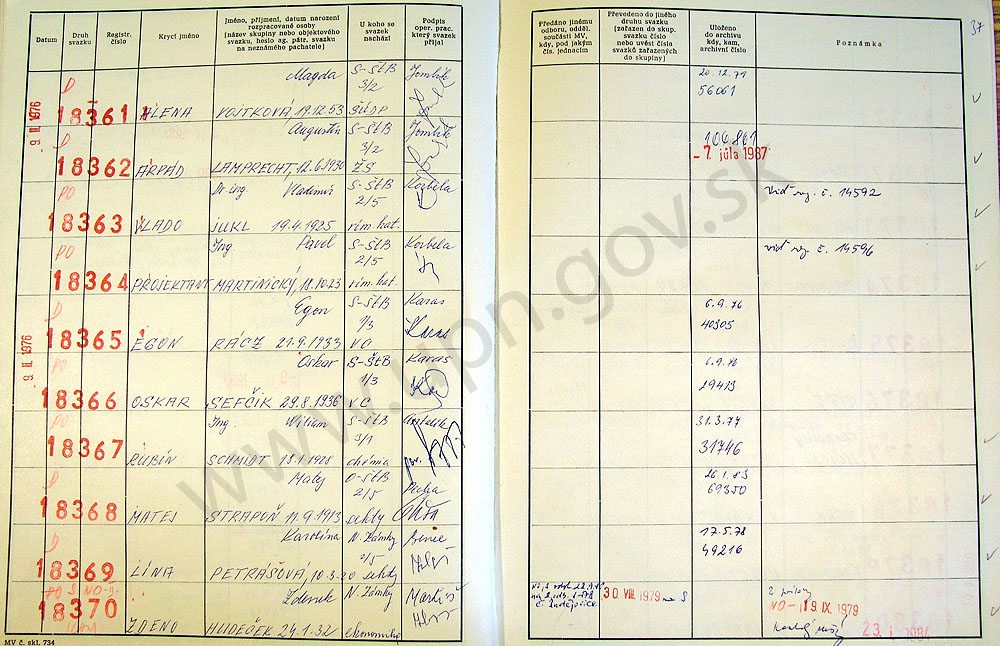 Datum
Druh svazku
Registr. číslo
Krycí jméno
Jméno, příjmení, datum narození rozpracované osoby (název skupiny nebo objektového svazku, heslo ag. pátr. svazku na neznámého pachatele)
U koho se svazek nachází
Podpis oper. prac. který svazek přijal
Předáno jinému odboru, odděl. součásti MV, kdy, pod jakým čís. jednacím
Převedeno do jiného druhu svazku (zařazen do skup. svazku číslo nebo uvést číslo svazků zařazených do skupiny)
Uloženo do archivu kdy, kam, archivní číslo
Poznámka
37
9. II. 1976
Magda S-ŠtB
3/2
18361 ALENA VOJTKOVÁ, 19.12.53 ŠÚDP
20.12.79
56061
Augustín S-ŠtB
3/2
18362 ÁRPÁD LAMPRECHT, 12.6.1930 ŽS
106861
- 7. júla 1987
PO Dr. ing. Vladimír S-ŠtB Korbela
2/5
18363 VLADO JUKL 19.4.1925 rím. kat.
viď reg. č. 14592
PO Ing. Pavel S-ŠtB Korbela
2/5
18364 PROJEKTANT MARTINICKÝ, 18.10.23 rím. kat.
viď reg. č. 14596
Egon S-ŠtB Karas
1/3
18365 EGON RÁCZ 21.9.1933 VC Karas
6.9.76
40305
9. II. 1976
PO Oskar S-ŠtB Karas
1/3
18366 OSKAR ŠEFČÍK 29.8.1936 VC
6.9.76
29413
PO Ing. Viliam S-ŠtB
3/1
18367 RUBÍN SCHMIDT 13.1.1928 chémia
31.3.77
31746
Matej O-ŠtB
2/5
18368 MATEJ STRAPOŇ 11.9.1913 sekty
26.1.83
69350
Karolína N. Zámky
2/5
18369 LÍNA PETRÁŠOVÁ, 10.3.20 sekty
17.5.78
49216
Zdenek N. Zámky
18370 ZDENO HUDEČEK 24.1.32
30 VIII. 1979
NO - 19. IX. 1979
23. I. 1984
MV č. skl. 734
www.upn.gov.sk